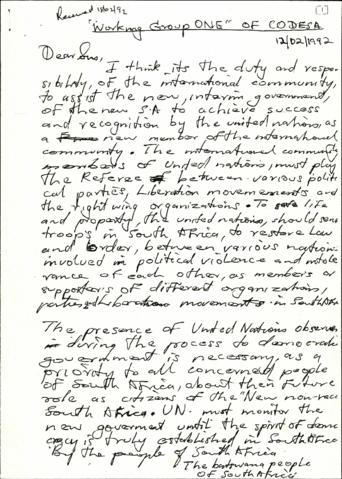 Received 18/02/92
1
"Working Group ONE" OF CODESA
12/02/1992
Dear Sirs,
I think its the duty and respo-
sibility, of the international community,
to assist the new, interim government,
of the new S.A to achieve success
and recognition by the united nations, as
a new member of the international
community. The international community
members of United nations, must play
the Referee between various politi
cal parties, Liberation movements and
the right wing organizations. To save life
and property, the united nations, should send
troops in South Africa, to restore Law
and order, between various nations
involved in political violence and intole
rance of each other, as members or
supporters of different organizations,
parties, Liberation movements in South Africa
The presence of United Nations observers
during the process to democratic
government is necessary, as a
priority to all concerned people
of South Africa, about their future
role as citizens of the "New non-racial
South Africa. UN. must monitor the
new goverment until the spirit of demo
cracy is truly established in South Africa
By the people of South Africa.
The batswana people
of South Africa